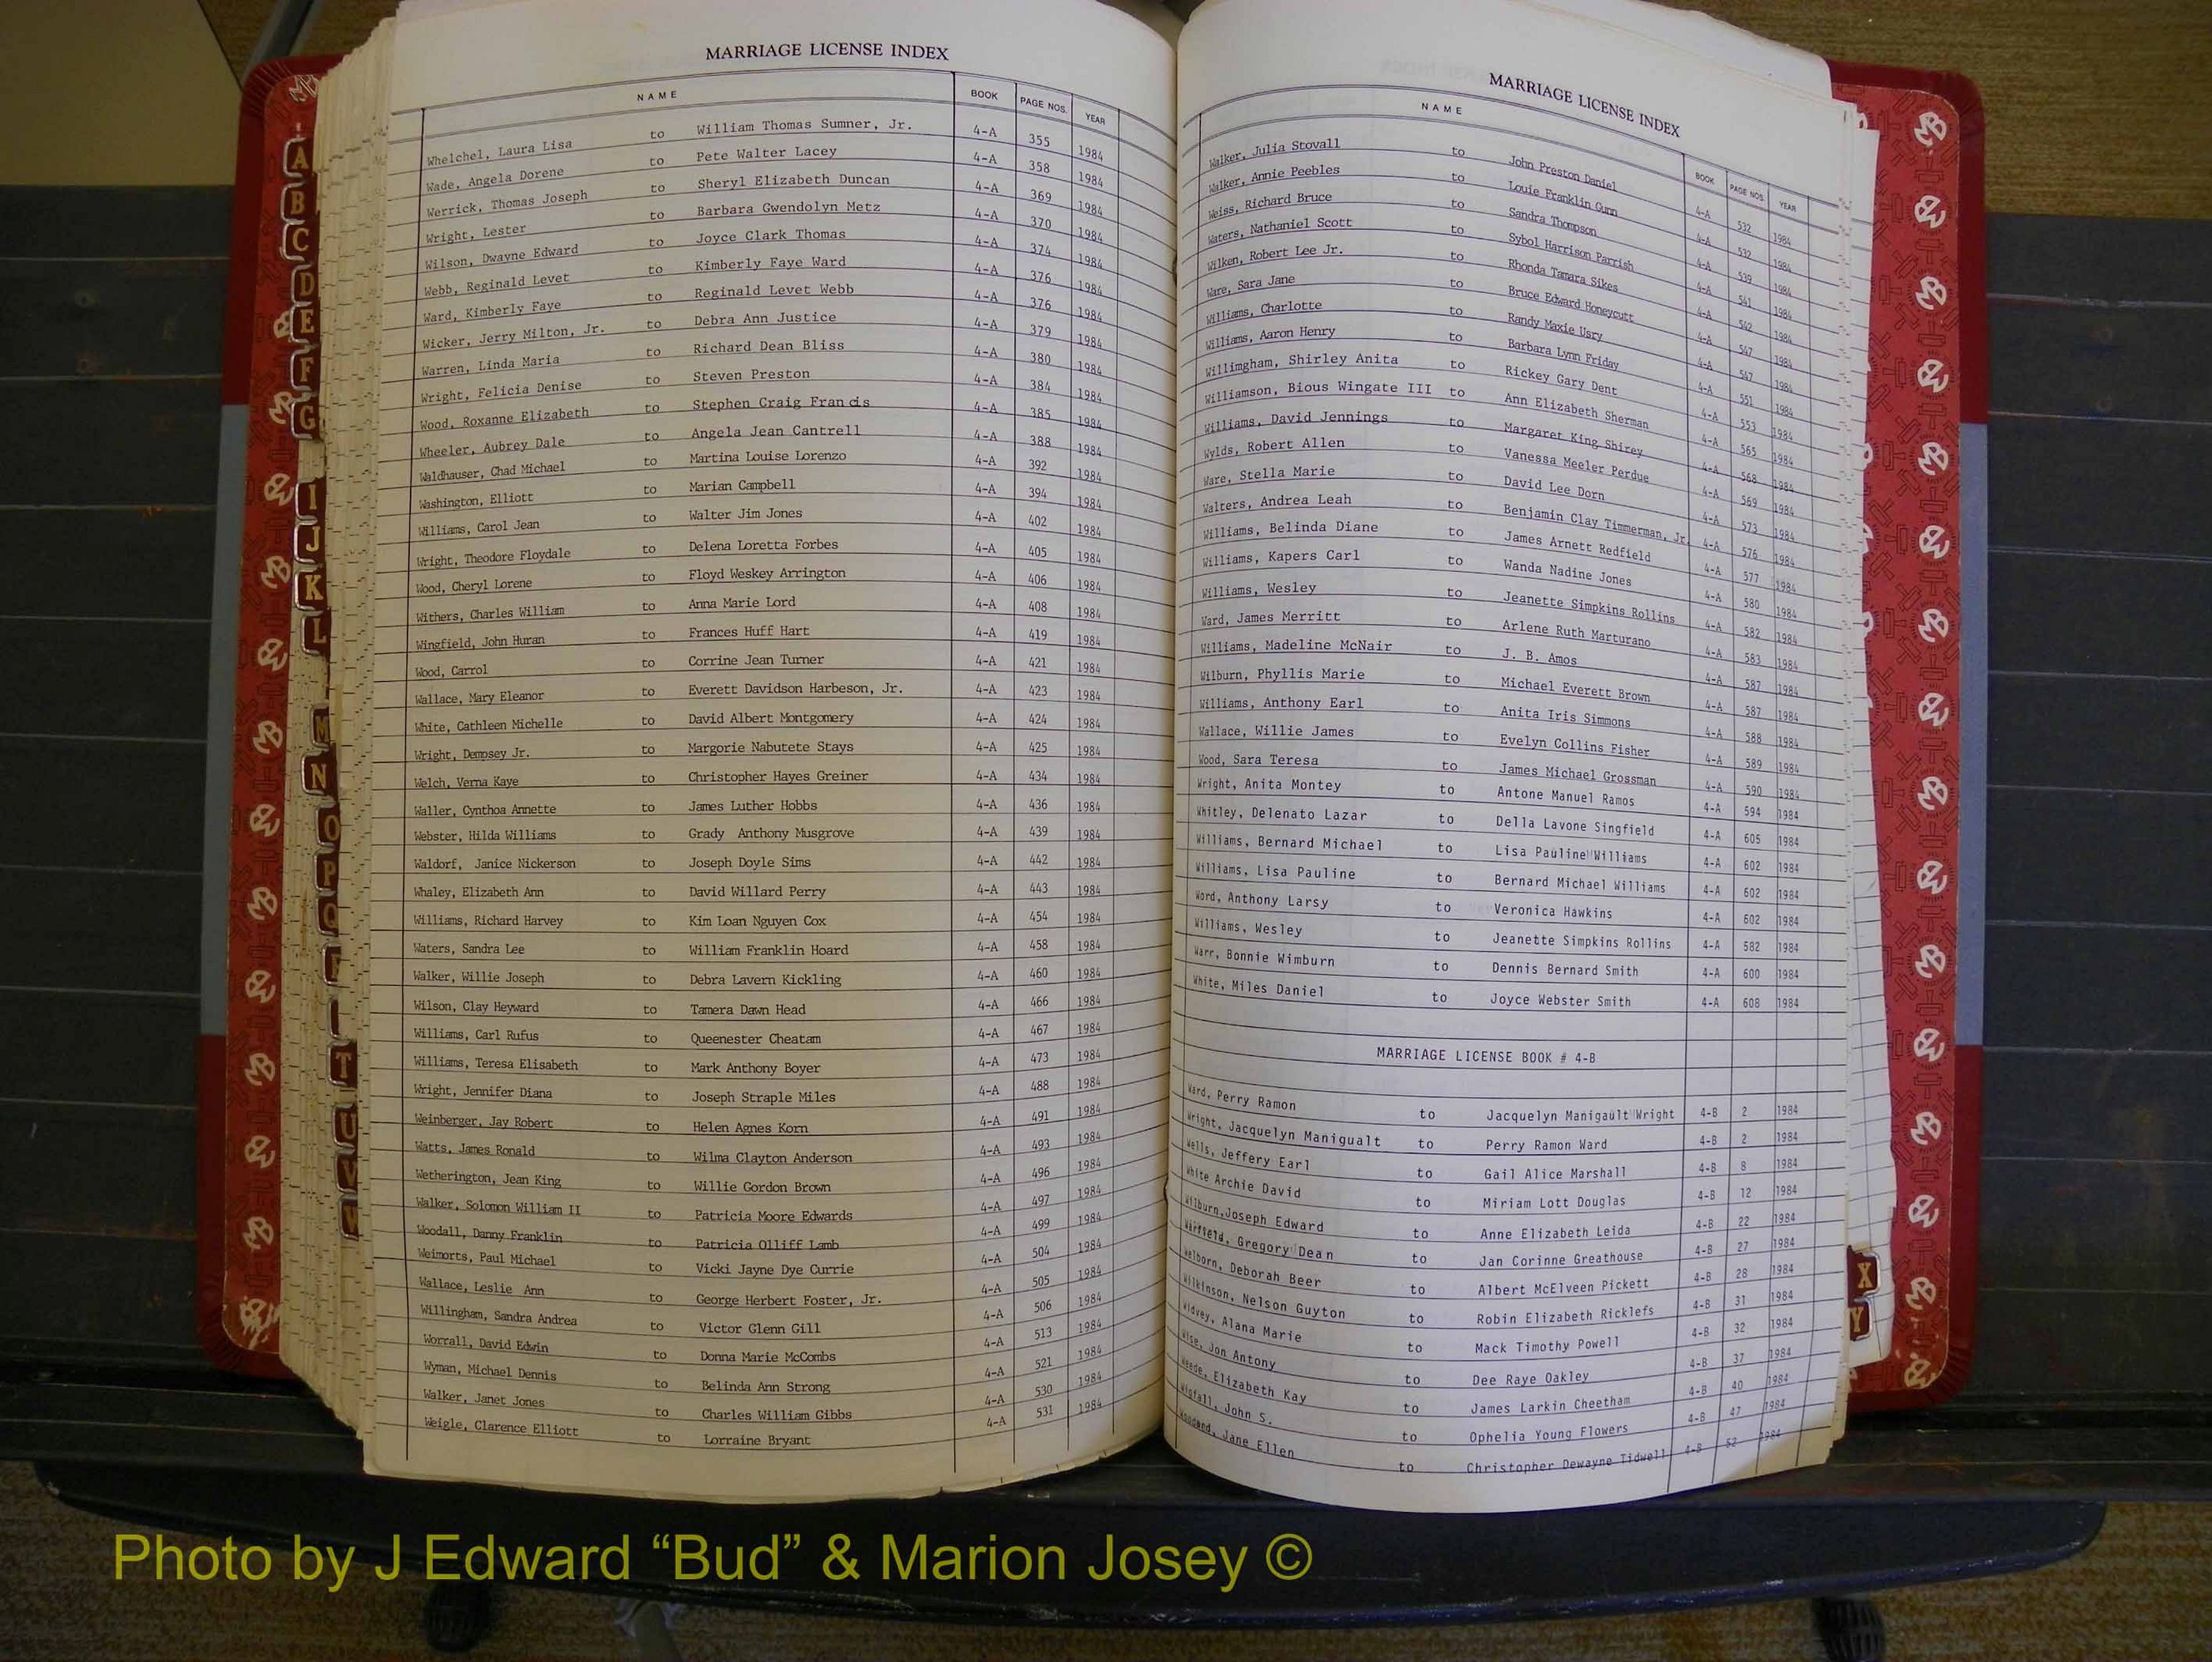 MARRIAGE LICENSE INDEX
NAME BOOK PAGE NOS. YEAR
Whelchel, Laura Lisa to William Thomas Sumner, Jr. 4-A 355 1984
Wade, Angela Dorene to Pete Walter Lacey 4-A 358 1984
Werrick, Thomas Joseph to Sheryl Elizabeth Duncan 4-A 369 1984
Wright, Lester to Barbara Gwendolyn Metz 4-A 370 1984
Wilson, Dwayne Edward to Joyce Clark Thomas 4-A 374 1984
Webb, Reginald Levet to Kimberly Faye Ward 4-A 376 1984
Ward, Kimberly Faye to Reginald Levet Webb 4-A 376 1984
Wicker, Jerry Milton, Jr. to Debra Ann Justice 4-A 379 1984
Warren, Linda Maria to Richard Dean Bliss 4-A 380 1984
Wright, Felicia Denise to Steven Preston 4-A 384 1984
Wood, Roxanne Elizabeth to Stephen Craig Francis 4-A 385 1984
Wheeler, Aubrey Dale to Angela Jean Cantrell 4-A 388 1984
Waldhauser, Chad Michael to Martina Louise Lorenzo 4-A 392 1984
Washington, Elliott to Marian Campbell 4-A 394 1984
Williams, Carol Jean to Walter Jim Jones 4-A 402 1984
Wright, Theodore Floydale to Delena Loretta Forbes 4-A 405 1984
Wood, Cheryl Lorene to Floyd Weskey Arrington 4-A 406 1984
Withers, Charles William to Anna Marie Lord 4-A 408 1984
Wingfield, John Huran to Frances Huff Hart 4-A 419 1984
Wood, Carrol to Corrine Jean Turner 4-A 421 1984
Wallace, Mary Eleanor to Everett Davidson Harbeson, Jr. 4-A 423 1984
White, Cathleen Michelle to David Albert Montgomery 4-A 424 1984
Wright, Dempsey Jr. to Margorie Nabutete Stays 4-A 425 1984
Welch, Verna Kaye to Christopher Hayes Greiner 4-A 434 1984
Waller, Cynthoa Annette to James Luther Hobbs 4-A 436 1984
Webster, Hilda Williams to Grady Anthony Musgrove 4-A 439 1984
Waldorf, Janice Nickerson to Joseph Doyle Sims 4-A 442 1984
Whaley, Elizabeth Ann to David Willard Perry 4-A 443 1984
Williams, Richard Harvey to Kim Loan Nguyen Cox 4-A 454 1984
Waters, Sandra Lee to William Franklin Hoard 4-A 458 1984
Walker, Willie Joseph to Debra Lavern Kickling 4-A 460 1984
Wilson, Clay Heyward to Tamera Dawn Head 4-A 466 1984
Williams, Carl Rufus to Queenester Cheatam 4-A 467 1984
Williams, Teresa Elisabeth to Mark Anthony Boyer 4-A 473 1984
Wright, Jennifer Diana to Joseph Straple Miles 4-A 488 1984
Weinberger, Jay Robert to Helen Agnes Korn 4-A 491 1984
Watts, James Ronald to Wilma Clayton Anderson 4-A 493 1984
Wetherington, Jean King to Willie Gordon Brown 4-A 496 1984
Walker, Solomon William II to Patricia Moore Edwards 4-A 497 1984
Woodall, Danny Franklin to Patricia Olliff Lamb 4-A 499 1984
Weimorts, Paul Michael to Vicki Jayne Dye Currie 4-A 504 1984
Wallace, Leslie Ann to George Herbert Foster, Jr. 4-A 505 1984
Willingham, Sandra Andrea to Victor Glenn Gill 4-A 506 1984
Worrall, David Edwin to Donna Marie McCombs 4-A 513 1984
Wyman, Michael Dennis to Belinda Ann Strong 4-A 521 1984
Walker, Janet Jones to Charles William Gibbs 4-A 530 1984
Weigle, Clarence Elliott to Lorraine Bryant 4-A 531 1984
MARRIAGE LICENSE INDEX
NAME BOOK PAGE NOS. YEAR
Walker, Julia Stovall to John Preston Daniel 4-A 532 1984
Walker, Annie Peebles to Louie Franklin Gunn 4-A 532 1984
Weiss, Richard Bruce to Sandra Thompson 4-A 539 1984
Waters, Nathaniel Scott to Sybol Harrison Parrish 4-A 541 1984
Wilken, Robert Lee Jr. to Rhonda Tamara Sikes 4-A 542 1984
Ware, Sara Jane to Bruce Edward Honeycutt 4-A 547 1984
Williams, Charlotte to Randy Maxie Usry 4-A 547 1984
Williams, Aaron Henry to Barbara Lynn Friday 4-A 551 1984
Willimgham, Shirley Anita to Rickey Gary Dent 4-A 553 1984
Williamson, Bious Wingate III to Ann Elizabeth Sherman 4-A 565 1984
Williams, David Jennings to Margaret King Shirey 4-A 568 1984
Wylds, Robert Allen to Vanessa Meeler Perdue 4-A 569 1984
Ware, Stella Marie to David Lee Dorn 4-A 573 1984
Walters, Andrea Leah to Benjamin Clay Timmerman, Jr. 4-A 576 1984
Williams, Belinda Diane to James Arnett Redfield 4-A 577 1984
Williams, Kapers Carl to Wanda Nadine Jones 4-A 580 1984
Williams, Wesley to Jeanette Simpkins Rollins 4-A 582 1984
Ward, James Merritt to Arlene Ruth Marturano 4-A 583 1984
Williams, Madeline McNair to J. B. Amos 4-A 587 1984
Wilburn, Phyllis Marie to Michael Everett Brown 4-A 587 1984
Williams, Anthony Earl to Anita Iris Simmons 4-A 588 1984
Wallace, Willie James to Evelyn Collins Fisher 4-A 589 1984
Wood, Sara Teresa to James Michael Grossman 4-A 590 1984
Wright, Anita Montey to Antone Manuel Ramos 4-A 594 1984
Whitley, Delenato Lazar to Della Lavone Singfield 4-A 605 1984
Williams, Bernard Michael to Lisa Pauline Williams 4-A 602 1984
Williams, Lisa Pauline to Bernard Michael Williams 4-A 602 1984
Word, Anthony Larsy to Veronica Hawkins 4-A 602 1984
Williams, Wesley to Jeanette Simpkins Rollins 4-A 582 1984
Warr, Bonnie Wimburn to Dennis Bernard Smith 4-A 600 1984
White, Miles Daniel to Joyce Webster Smith 4-A 608 1984
MARRIAGE LICENSE BOOK # 4-B
Ward, Perry Ramon to Jacquelyn Manigault Wright 4-B 2 1984
Wright, Jacquelyn Manigualt to Perry Ramon Ward 4-B 2 1984
Wells, Jeffery Earl to Gail Alice Marshall 4-B 8 1984
White Archie David to Miriam Lott Douglas 4-B 12 1984
Wilburn,Joseph Edward to Anne Elizabeth Leida 4-B 22 1984
Warfield, Gregory Dean to Jan Corinne Greathouse 4-B 27 1984
Welborn, Deborah Beer to Albert McElveen Pickett 4-B 28 1984
Wilkinson, Nelson Guyton to Robin Elizabeth Ricklefs 4-B 31 1984
Widvey, Alana Marie to Mack Timothy Powell 4-B 32 1984
Wise, Jon Antony to Dee Raye Oakley 4-B 37 1984
Weede, Elizabeth Kay to James Larkin Cheetham 4-B 40 1984
Wigfall, John S. to Ophelia Young Flowers 4-B 47 1984
Woodward, Jane Ellen to Christopher Dewayne Tidwell 4-B 52 1984
A
B
C
D
E
F
G
I
J
K
L
M
N
O
P
Q
T
U
V
W
X
Y
Photo by J Edward “Bud” & Marion Josey ©